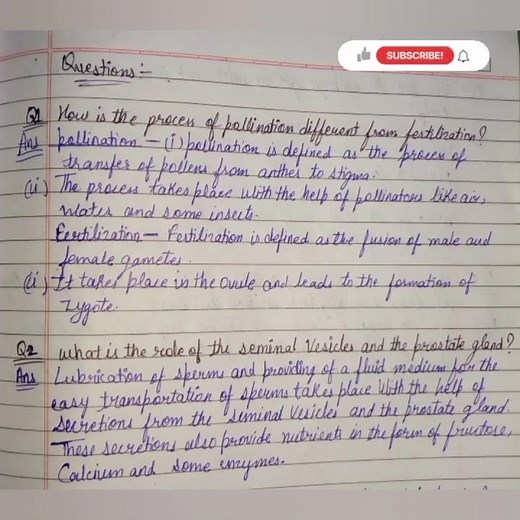 SUBSCRIBE!
Questions:-
Q1 How is the process of pollination different from fertilization?
Ans pollination - (i) pollination is defined as the process of
transfer of pollens from anther to stigma.
(ii) The process takes place with the help of pollinators like air,
water and some insects.
Fertilization - Fertilization is defined as the fusion of male and
female gametes.
(ii) It takes place in the ovule and leads to the formation of
zygote.
Q2 what is the role of the seminal vesicles and the prostate gland?
Ans Lubrication of sperms and providing of a fluid medium for the
easy transportation of sperms takes place with the help of
secretions from the seminal vesicles and the prostate gland.
These secretions also provide nutrients in the form of fructose,
Calcium and some enzymes.